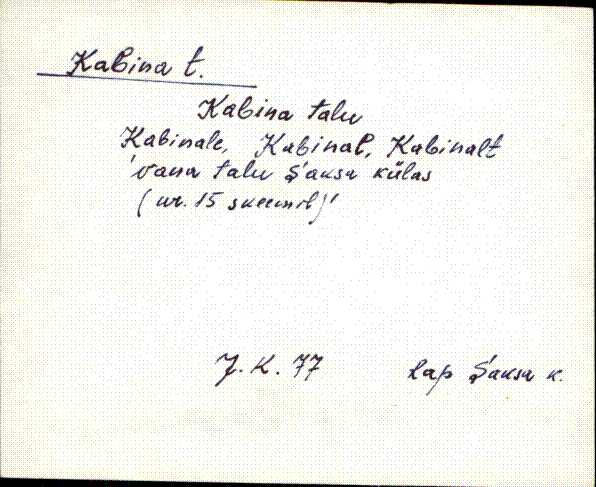 Kabina t.
Kabina talu
Kabinale, Kabinal, Kabinalt
'vana talu S'aksa külas
(nr. 15 skeemil)'
J. K. 77
Lap S'aksa k.